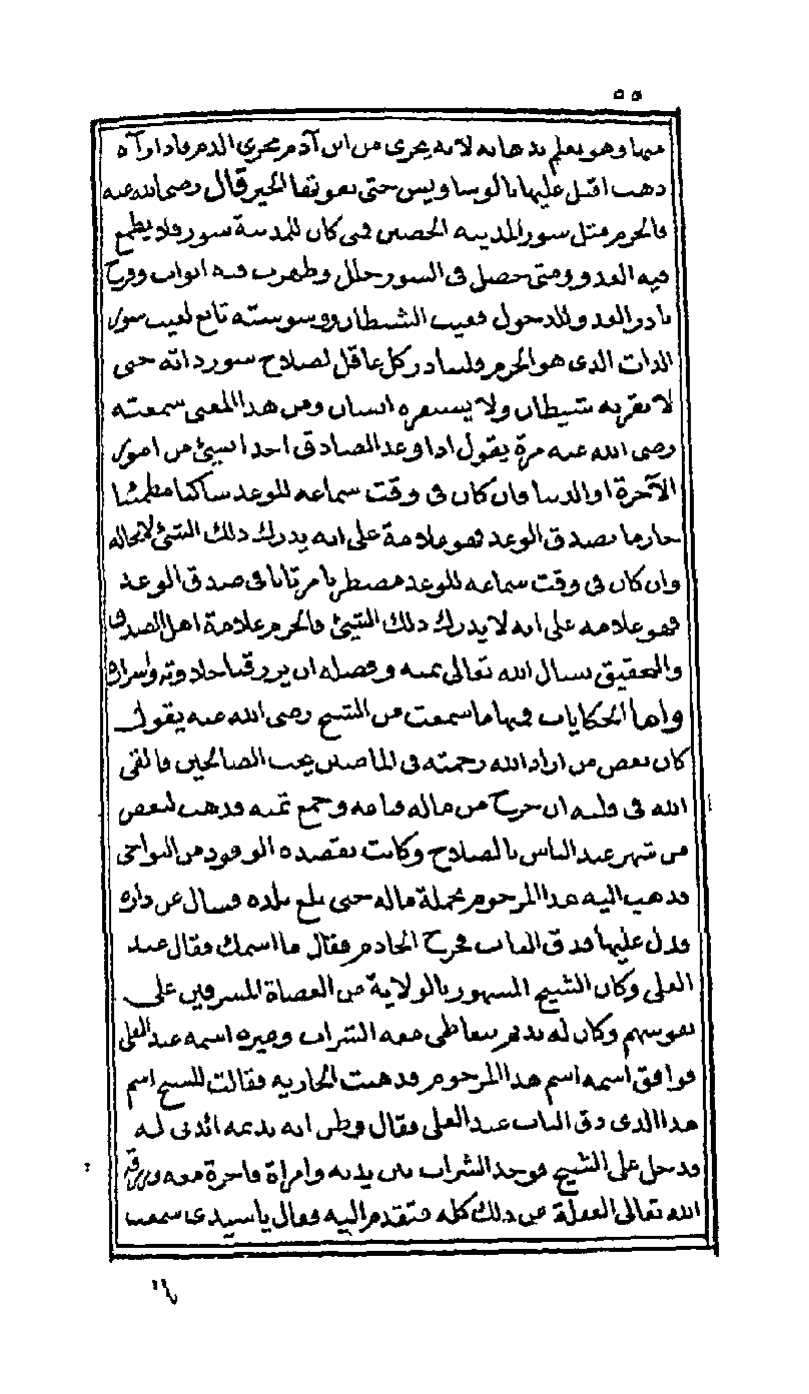 ٥٥
منها وهو يعلم بذهابه لانه يجرى من ابن آدم مجرى الدم فاذا رآه
ذهب اقبل عليها بالوساويس حتى يفوتها الخير قال رضى الله عنه
فالجزم مثل سور المدينه الحصين فمتى كان للمدينة سور فلا يطمع
فيه العدو ومتى حصل فى السور خلل وظهرت فيه ابواب وفرج
بادر العدو للدخول فعيب الشيطان ووسوسته تابع لعيب سور
الذات الذى هو الجزم فليبادر كل عاقل لصلاح سور ذاته حتى
لا يقربه شيطان ولا يستفزه انسان ومن هذا المعنى سمعته
رضى الله عنه مرة يقول اذا وعد الصادق احدا بشئ من امور
الآخرة او الدنيا فان كان فى وقت سماعه للوعد ساكنا مطمئنا
جازما بصدق الوعد فهو علامة على انه يدرك ذلك الشئ لا محاله
وان كان فى وقت سماعه للوعد مضطربا مرتابا فى صدق الوعد
فهو علامه على انه لا يدرك ذلك الشئ فالجزم علامة اهل الصدق
والتحقيق نسال الله تعالى بمنه وفضله ان يرزقنا حلاوته واسراره
واما الحكايات فمنها ما سمعت من الشيخ رضى الله عنه يقول
كان بعض من اراد الله رحمته فى الماضين يحب الصالحين فالقى
الله فى قلبه ان خرج من ماله فباعه وجمع ثمنه وذهب لبعض
من شهر عند الناس بالصلاح وكانت تقصده الوفود من النواحى
فذهب اليه هذا المرحوم بجملة ماله حتى بلغ بلده فسال عن داره
فدل عليها فدق الباب فخرج الخادم فقال ما اسمك فقال عبد
العلى وكان الشيخ المشهور بالولاية من العصاة المسرفين على
نفوسهم وكان له نديم يتعاطى معه الشراب وغيره اسمه عبد العلى
فوافق اسمه اسم هذا المرحوم فذهبت الجاريه فقالت للشيخ اسم
هذا الذى دق الباب عبد العلى فقال وظن انه نديمه ائذنى له
فدخل على الشيخ فوجد الشراب بين يديه وامراة فاجرة معه ورزقه
الله تعالى الغفلة عن ذلك كله فتقدم اليه فقال ياسيدى سمعت